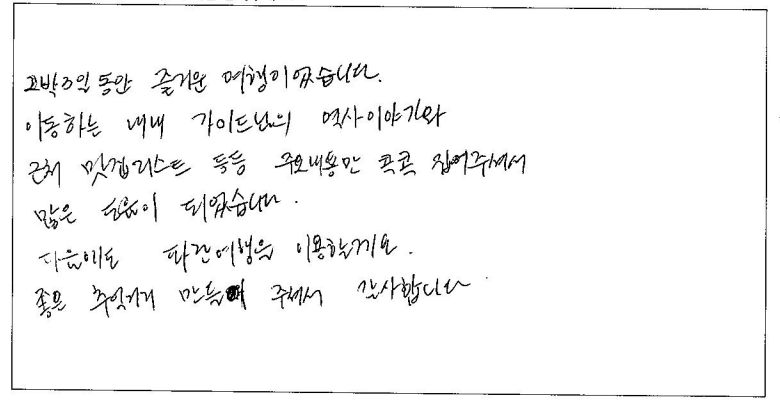 2박3일 동안 즐거운 여행이었습니다.
이동하는 내내 가이드님의 역사이야기와
근처 맛집리스트 등등 주요내용만 콕콕 집어주셔서
많은 도움이 되었습니다.
다음에도 파란여행을 이용할게요.
좋은 추억거리 만들어 주셔서 감사합니다.